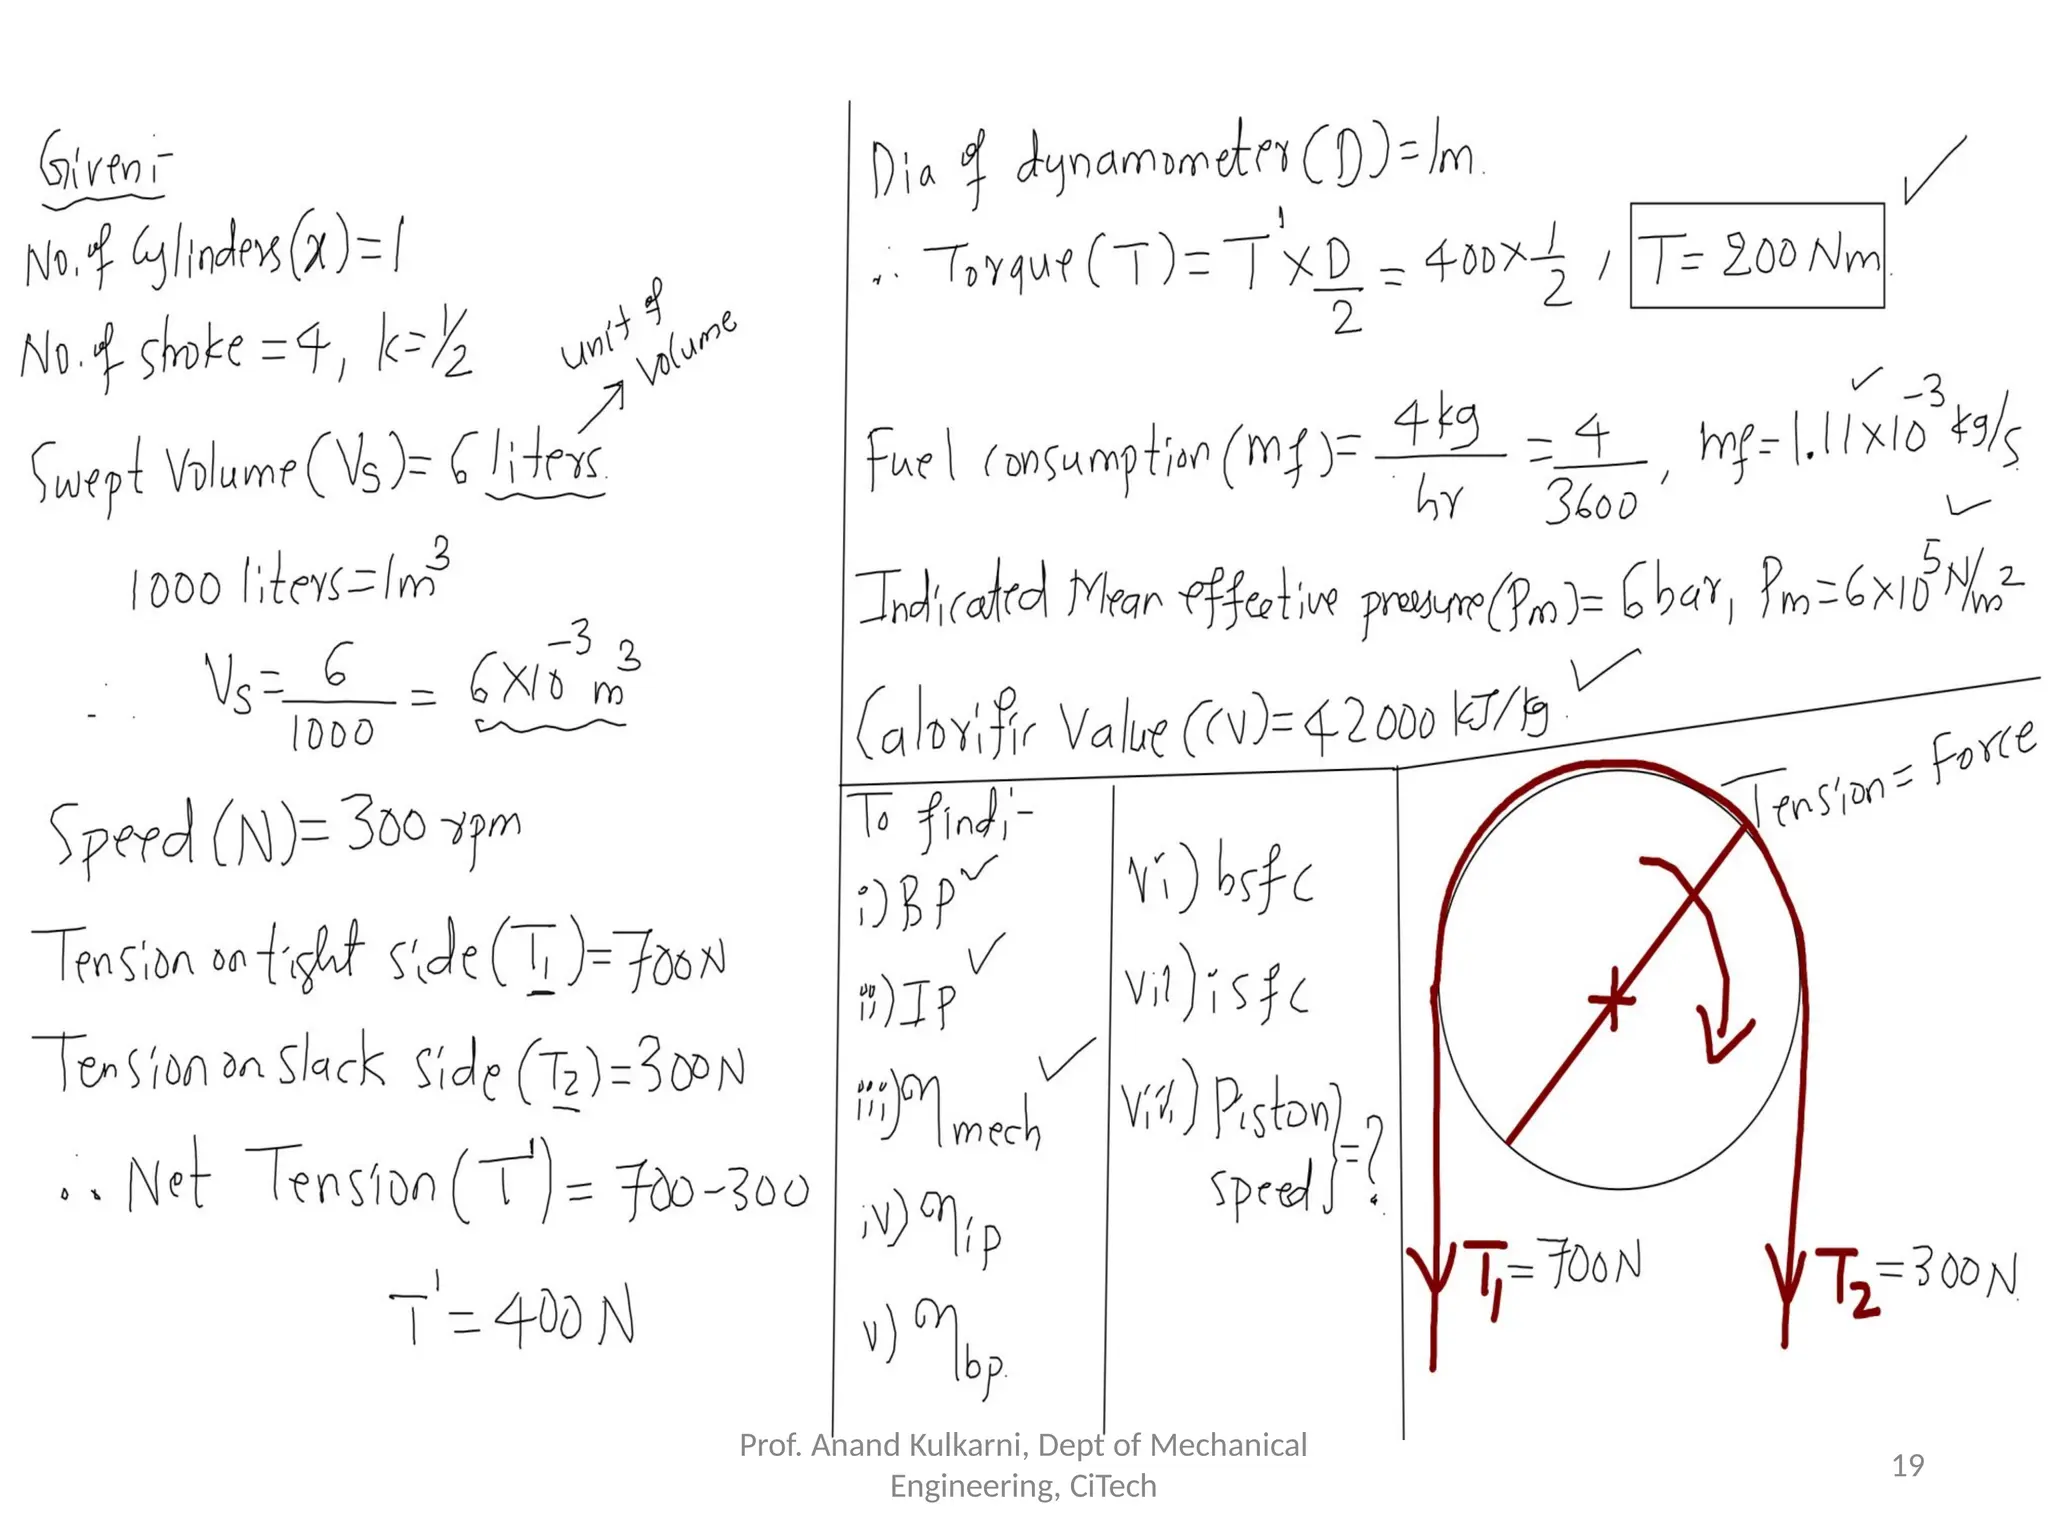 Given:-
No. of Cylinders (x) = 1
No. of stroke = 4, k = 1/2
unit of volume
Swept Volume (Vs) = 6 liters.
1000 liters = 1m³
∴ Vs = 6/1000 = 6×10⁻³ m³
Speed (N) = 300 rpm
Tension on tight side (T₁) = 700N
Tension on Slack side (T₂) = 300N
∴ Net Tension (T') = 700-300
T' = 400 N
Dia of dynamometer (D) = 1m.
∴ Torque (T) = T' × D/2 = 400 × 1/2, T = 200 Nm.
Fuel consumption (mf) = 4kg/hr = 4/3600, mf = 1.11×10⁻³ kg/s
Indicated Mean effective pressure (Pm) = 6bar, Pm = 6×10⁵ N/m²
Calorific Value (CV) = 42000 kJ/kg.
To find:-
i) BP
ii) IP
iii) ηmech
iv) ηip
v) ηbp.
vi) bsfc
vii) isfc
viii) Piston speed } = ?
Tension = Force
T₁ = 700N
T₂ = 300N.
Prof. Anand Kulkarni, Dept of Mechanical
Engineering, CiTech
19